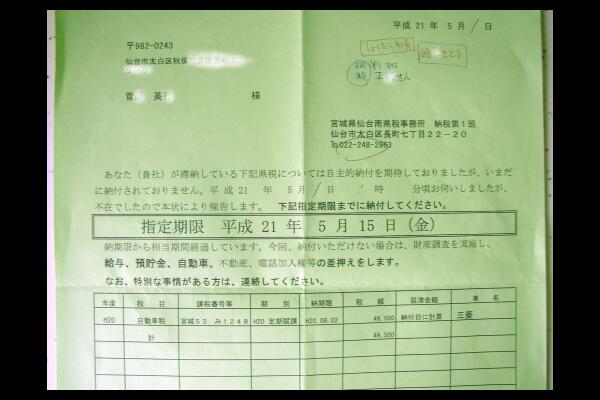 平成 21 年 5 月 / 日
〒982-0243
仙台市太白区秋保
様
宮城県仙台南県税事務所 納税第1班
仙台市太白区長町七丁目22-20
℡022-248-2963
あなた(貴社)が滞納している下記県税については自主的納付を期待しておりましたが、いまだ
に納付されておりません。平成 21 年 5 月 / 日 時 分頃お伺いしましたが、
不在でしたので本状により催告します。 下記指定期限までに納付してください。
指定期限 平成 21 年 5 月 15 日(金)
納期限から相当期間経過しています。今回、納付いただけない場合は、財産調査を実施し、
給与、預貯金、自動車、不動産、電話加入権等の差押えをします。
なお、特別な事情がある方は、連絡してください。
年度 税 目 課税番号等 期 別 納期限 税 額 延滞金額 車 名
H20 自動車税 宮城53 み1248 H20 定期賦課 H20.06.02 49,500 納付日に計算 三菱
計 49,500